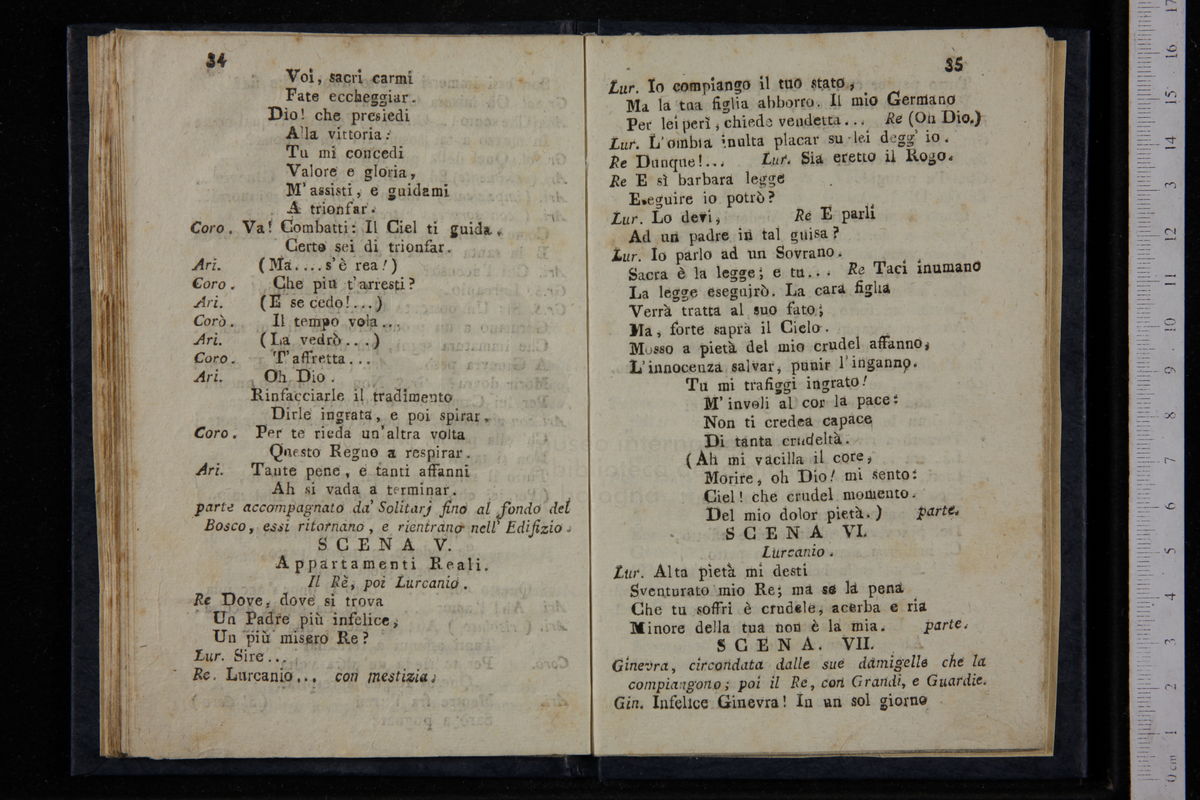 34
Voi, sacri carmi
Fate eccheggiar.
Dio! che presiedi
Alla vittoria:
Tu mi concedi
Valore e gloria,
M' assisti, e guidami
A trionfar.
Coro. Va! Combatti: Il Ciel ti guida,
Certo sei di trionfar.
Ari. (Ma....s'è rea!)
Coro. Che più t'arresti?
Ari. (E se cedo!...)
Corò. Il tempo vola...
Ari. (La vedrò...)
Coro. T'affretta...
Ari. Oh Dio.
Rinfacciarle il tradimento
Dirle ingrata, e poi spirar.
Coro. Per te rieda un'altra volta
Questo Regno a respirar.
Ari. Tante pene, e tanti affanni
Ah si vada a terminar.
parte accompagnato da' Solitarj fino al fondo del
Bosco, essi ritornano, e rientrano nell' Edifizio.
SCENA V.
Appartamenti Reali.
Il Rè, poi Lurcanio.
Re Dove, dove si trova
Un Padre più infelice,
Un più misero Re?
Lur. Sire...
Re. Lurcanio... con mestizia.
35
Lur. Io compiango il tuo stato,
Ma la tua figlia abborro. Il mio Germano
Per lei perì, chiede vendetta... Re (Oh Dio.)
Lur. L'ombra inulta placar su lei degg' io.
Re Dunque!... Lur. Sia eretto il Rogo.
Re E sì barbara legge
Eseguire io potrò?
Lur. Lo devi, Re E parli
Ad un padre in tal guisa?
Lur. Io parlo ad un Sovrano.
Sacra è la legge; e tu... Re Taci inumano
La legge eseguirò. La cara figlia
Verrà tratta al suo fato;
Ma, forte saprà il Cielo.
Mosso a pietà del mio crudel affanno,
L'innocenza salvar, punir l'inganno.
Tu mi trafiggi ingrato!
M' involi al cor la pace:
Non ti credea capace
Di tanta crudeltà.
(Ah mi vacilla il core,
Morire, oh Dio! mi sento:
Ciel! che crudel momento.
Del mio dolor pietà.) parte.
SCENA VI.
Lurcanio.
Lur. Alta pietà mi desti
Sventurato mio Re; ma se la pena
Che tu soffri è crudele, acerba e ria
Minore della tua non è la mia. parte.
SCENA. VII.
Ginevra, circondata dalle sue damigelle che la
compiangono; poi il Re, con Grandi, e Guardie.
Gin. Infelice Ginevra! In un sol giorno